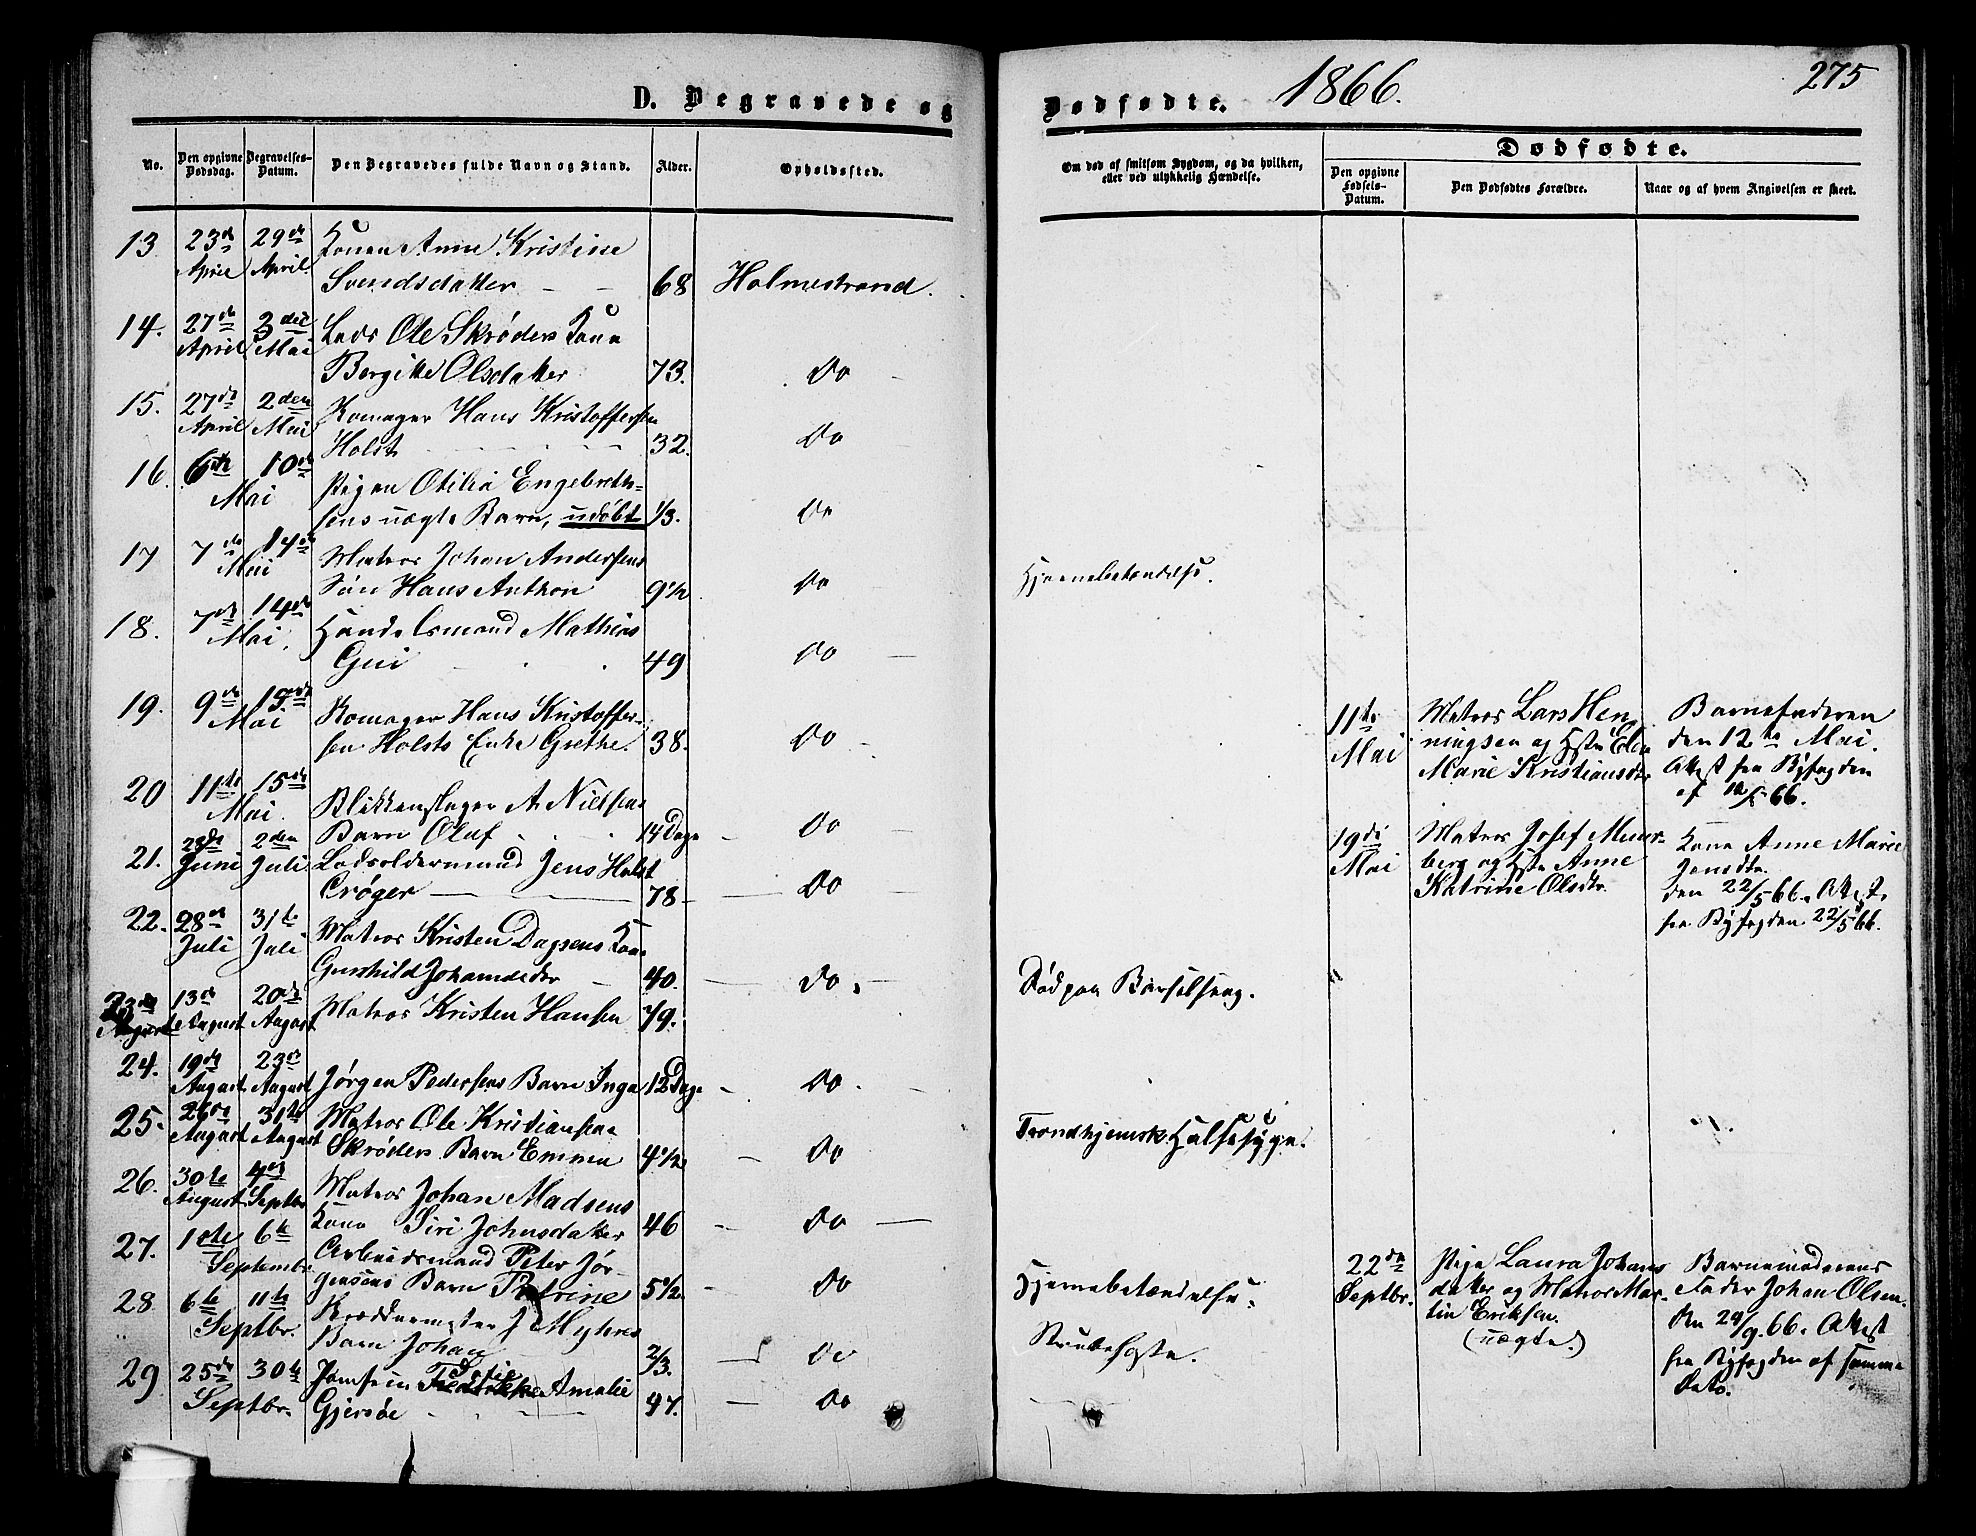 D. Begravede og
Dødfødte. 1866. 275
No.
Den opgivne Dødsdag.
Begravelses-Datum.
Den Begravedes fulde Navn og Stand.
Alder.
Opholdssted.
Om død af smitsom Sygdom, og da hvilken,
eller ved ulykkelig Hændelse.
Dødfødte.
Den opgivne Fødsels-Datum.
Den Dødfødtes Forældre.
Naar og af hvem Angivelsen er skeet.
13. 23de April 29de April Konen Anne Kristine
Svendsdatter 68 Holmestrand.
14. 27de April 3die Mai Lods Ole Skrøders Kone
Bergitte Olsdatter 73. Do
15. 27de April 2den Mai Komager Hans Kristoffersen
Holst 32. Do
16. 6te 10de Mai Pigen Otilia Engebreth-
sens uægte Barn, udøbt 1/3. Do
17 7de 14de Mai Matros Johan Andersens
Søn Hans Anthon 9 1/2 Do Hjernebetændelse.
18. 7de 14de Mai Handelsmand Mathias
Gui 49 Do
19. 9de 15de Mai Komager Hans Kristoffer-
sen Holsts Enke Grethe. 38. Do
20 11te 15de Mai Blikkenslager A. Nielsens
Barn Oluf 14 Dage Do
21. 28de Juni 2den Juli Lodsoldermand Jens Holst
Crøger 78 Do
22. 28de Juli 31te Juli Matros Kristen Dagsens Kone
Gunhild Johannesdtr 40. Do. Død paa Barselseng.
23de August 13de August 20de August Matros Kristen Hansen 79.
24. 19de August 23de August Jørgen Pedersens Barn Inga 12 Dage Do.
25. 26de August 31te August Matros Ole Kristiansen
Skrøders Barn Emma 4 1/2 Do Trondhjemsk Halsesyge.
26. 30te August 4de Septbr Matros Johan Madsens
Kone Siri Johnsdatter 46 Do
27. 1ste 6te Septembr Arbeidsmand Peter Jør-
gensens Barn Petrine 5 1/2 Do Hjernebetændelse.
28 6te 11te Septbr. J. Myhres
Barn Johan 2/3. Do Strubehoste.
29 25de 30te Septbr. Jomfruen Amalie
Gjersøe 47. Do
11te Mai
Matros Lars Hen-
ningsen og Hstr Elen
Marie Kristiansdtr
Barnefaderen
den 12te Mai.
Attest fra Byfogden
af 12/5 66.
19de Mai
Matros Josef Muur-
berg og Hstr Anne
Katrine Olsdtr.
Kone Anne Marie
Jensdtr.
den 22/5 66. Attest
fra Byfogden 22/5 66.
22de Septbr.
Pige Laura Johans
datter og Matros Mar-
tin Eriksen.
(uægte.)
Barnemoderens
Fader Johan Olsen.
den 24/9. 66. Attest
fra Byfogden af samme
Dato.